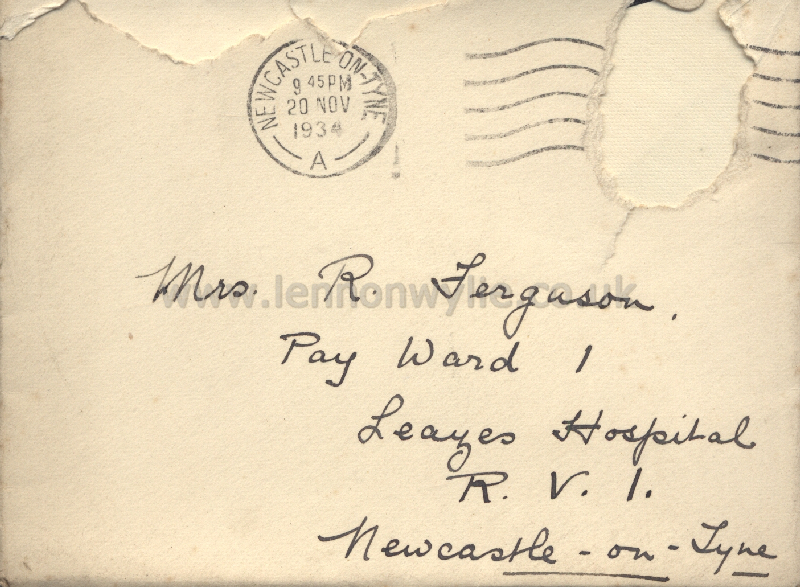 NEWCASTLE-ON-TYNE
9 45 PM
20 NOV
1934
A
www.lennonwylie.co.uk
Mrs. R. Ferguson,
Pay Ward 1
Leazes Hospital
R. V. I.
Newcastle-on-Tyne